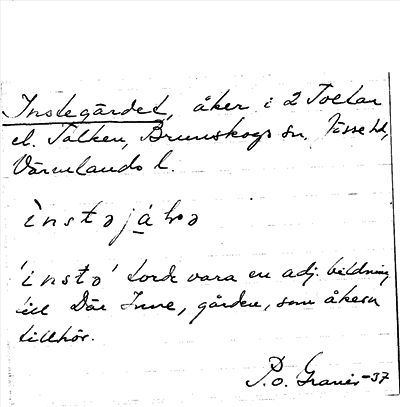 Instegärdet, åker i 2 Toetan
el. Tolken, Brunskogs sn, Jösse hd,
Värmlands l.
ìnstəjáɫə
'instə' torde vara en adj. bildning
till Där Inne, gården, som åkern
tillhör.
P.o. Graner -37